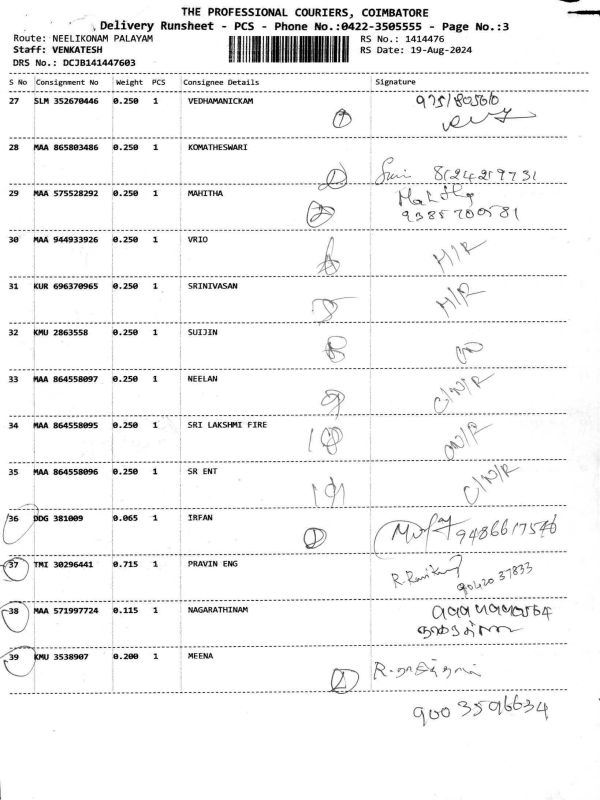 THE PROFESSIONAL COURIERS, COIMBATORE
Delivery Runsheet - PCS - Phone No.:0422-3505555 - Page No.:3
Route: NEELIKONAM PALAYAM RS No.: 1414476
Staff: VENKATESH RS Date: 19-Aug-2024
DRS No.: DCJB141447603
S No Consignment No Weight PCS Consignee Details Signature
27 SLM 352670446 0.250 1 VEDHAMANICKAM
28 MAA 865803486 0.250 1 KOMATHESWARI
8124259731
29 MAA 575528292 0.250 1 MAHITHA
9385700581
30 MAA 944933926 0.250 1 VRIO
31 KUR 696370965 0.250 1 SRINIVASAN
32 KMU 2863558 0.250 1 SUIJIN
33 MAA 864558097 0.250 1 NEELAN C/N/R
34 MAA 864558095 0.250 1 SRI LAKSHMI FIRE
35 MAA 864558096 0.250 1 SR ENT C/N/R
36 DDG 381009 0.065 1 IRFAN 9486617546
37 TMI 30296441 0.715 1 PRAVIN ENG
9042037833
38 MAA 571997724 0.115 1 NAGARATHINAM
39 KMU 3538907 0.200 1 MEENA
9003596634